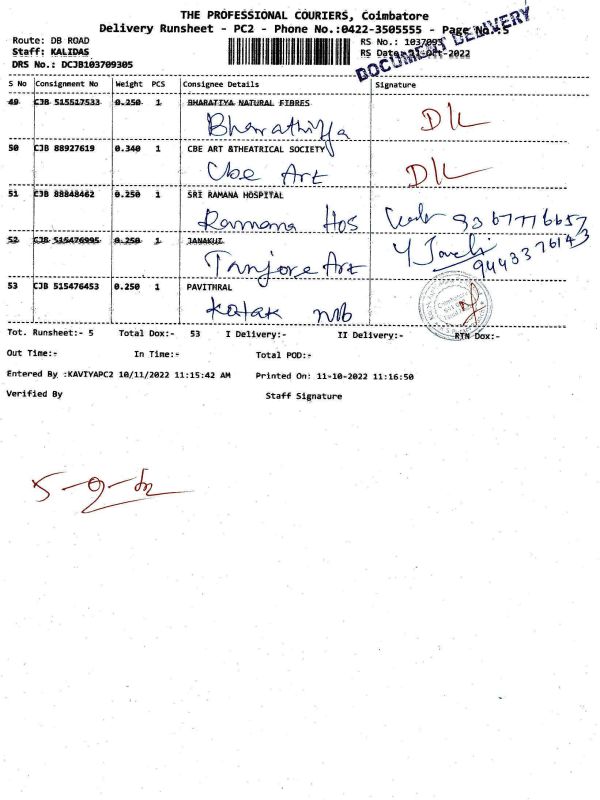 THE PROFESSIONAL COURIERS, Coimbatore
Delivery Runsheet - PC2 - Phone No.:0422-3505555 - Page No.:5
DOCUMENT DELIVERY
Route: DB ROAD
RS No.:
Staff: KALIDAS
RS Date
DRS No.: DCJB103709305
S No Consignment No Weight PCS Consignee Details Signature
49 CJB 515517533 0.250 1 BHARATIYA NATURAL FIBRES
Bharathiya D/L
50 CJB 88927619 0.340 1 CBE ART &THEATRICAL SOCIETY
Cbe Art D/L
51 CJB 88848462 0.250 1 SRI RAMANA HOSPITAL
Ramana Hos 9367776657
52 CJB 515476995 0.250 1
Tanjore Art 9443376143
53 CJB 515476453 0.250 1 PAVITHRAL
Kotak
Tot. Runsheet:- 5 Total Dox:- 53 I Delivery:- II Delivery:- RTN Dox:-
Out Time:- In Time:- Total POD:-
Entered By :KAVIYAPC2 10/11/2022 11:15:42 AM Printed On: 11-10-2022 11:16:50
Verified By Staff Signature